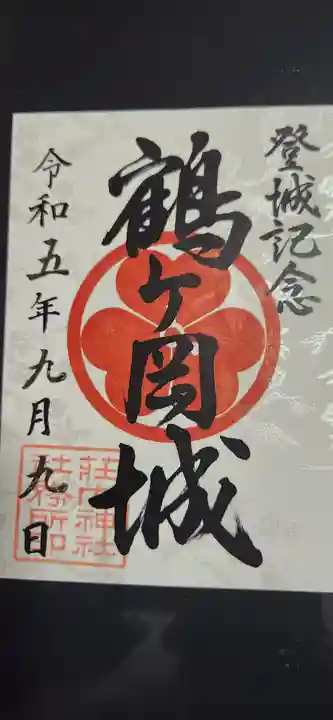 登城記念
鶴ヶ岡城
令和五年九月九日
荘内神社
社務所印